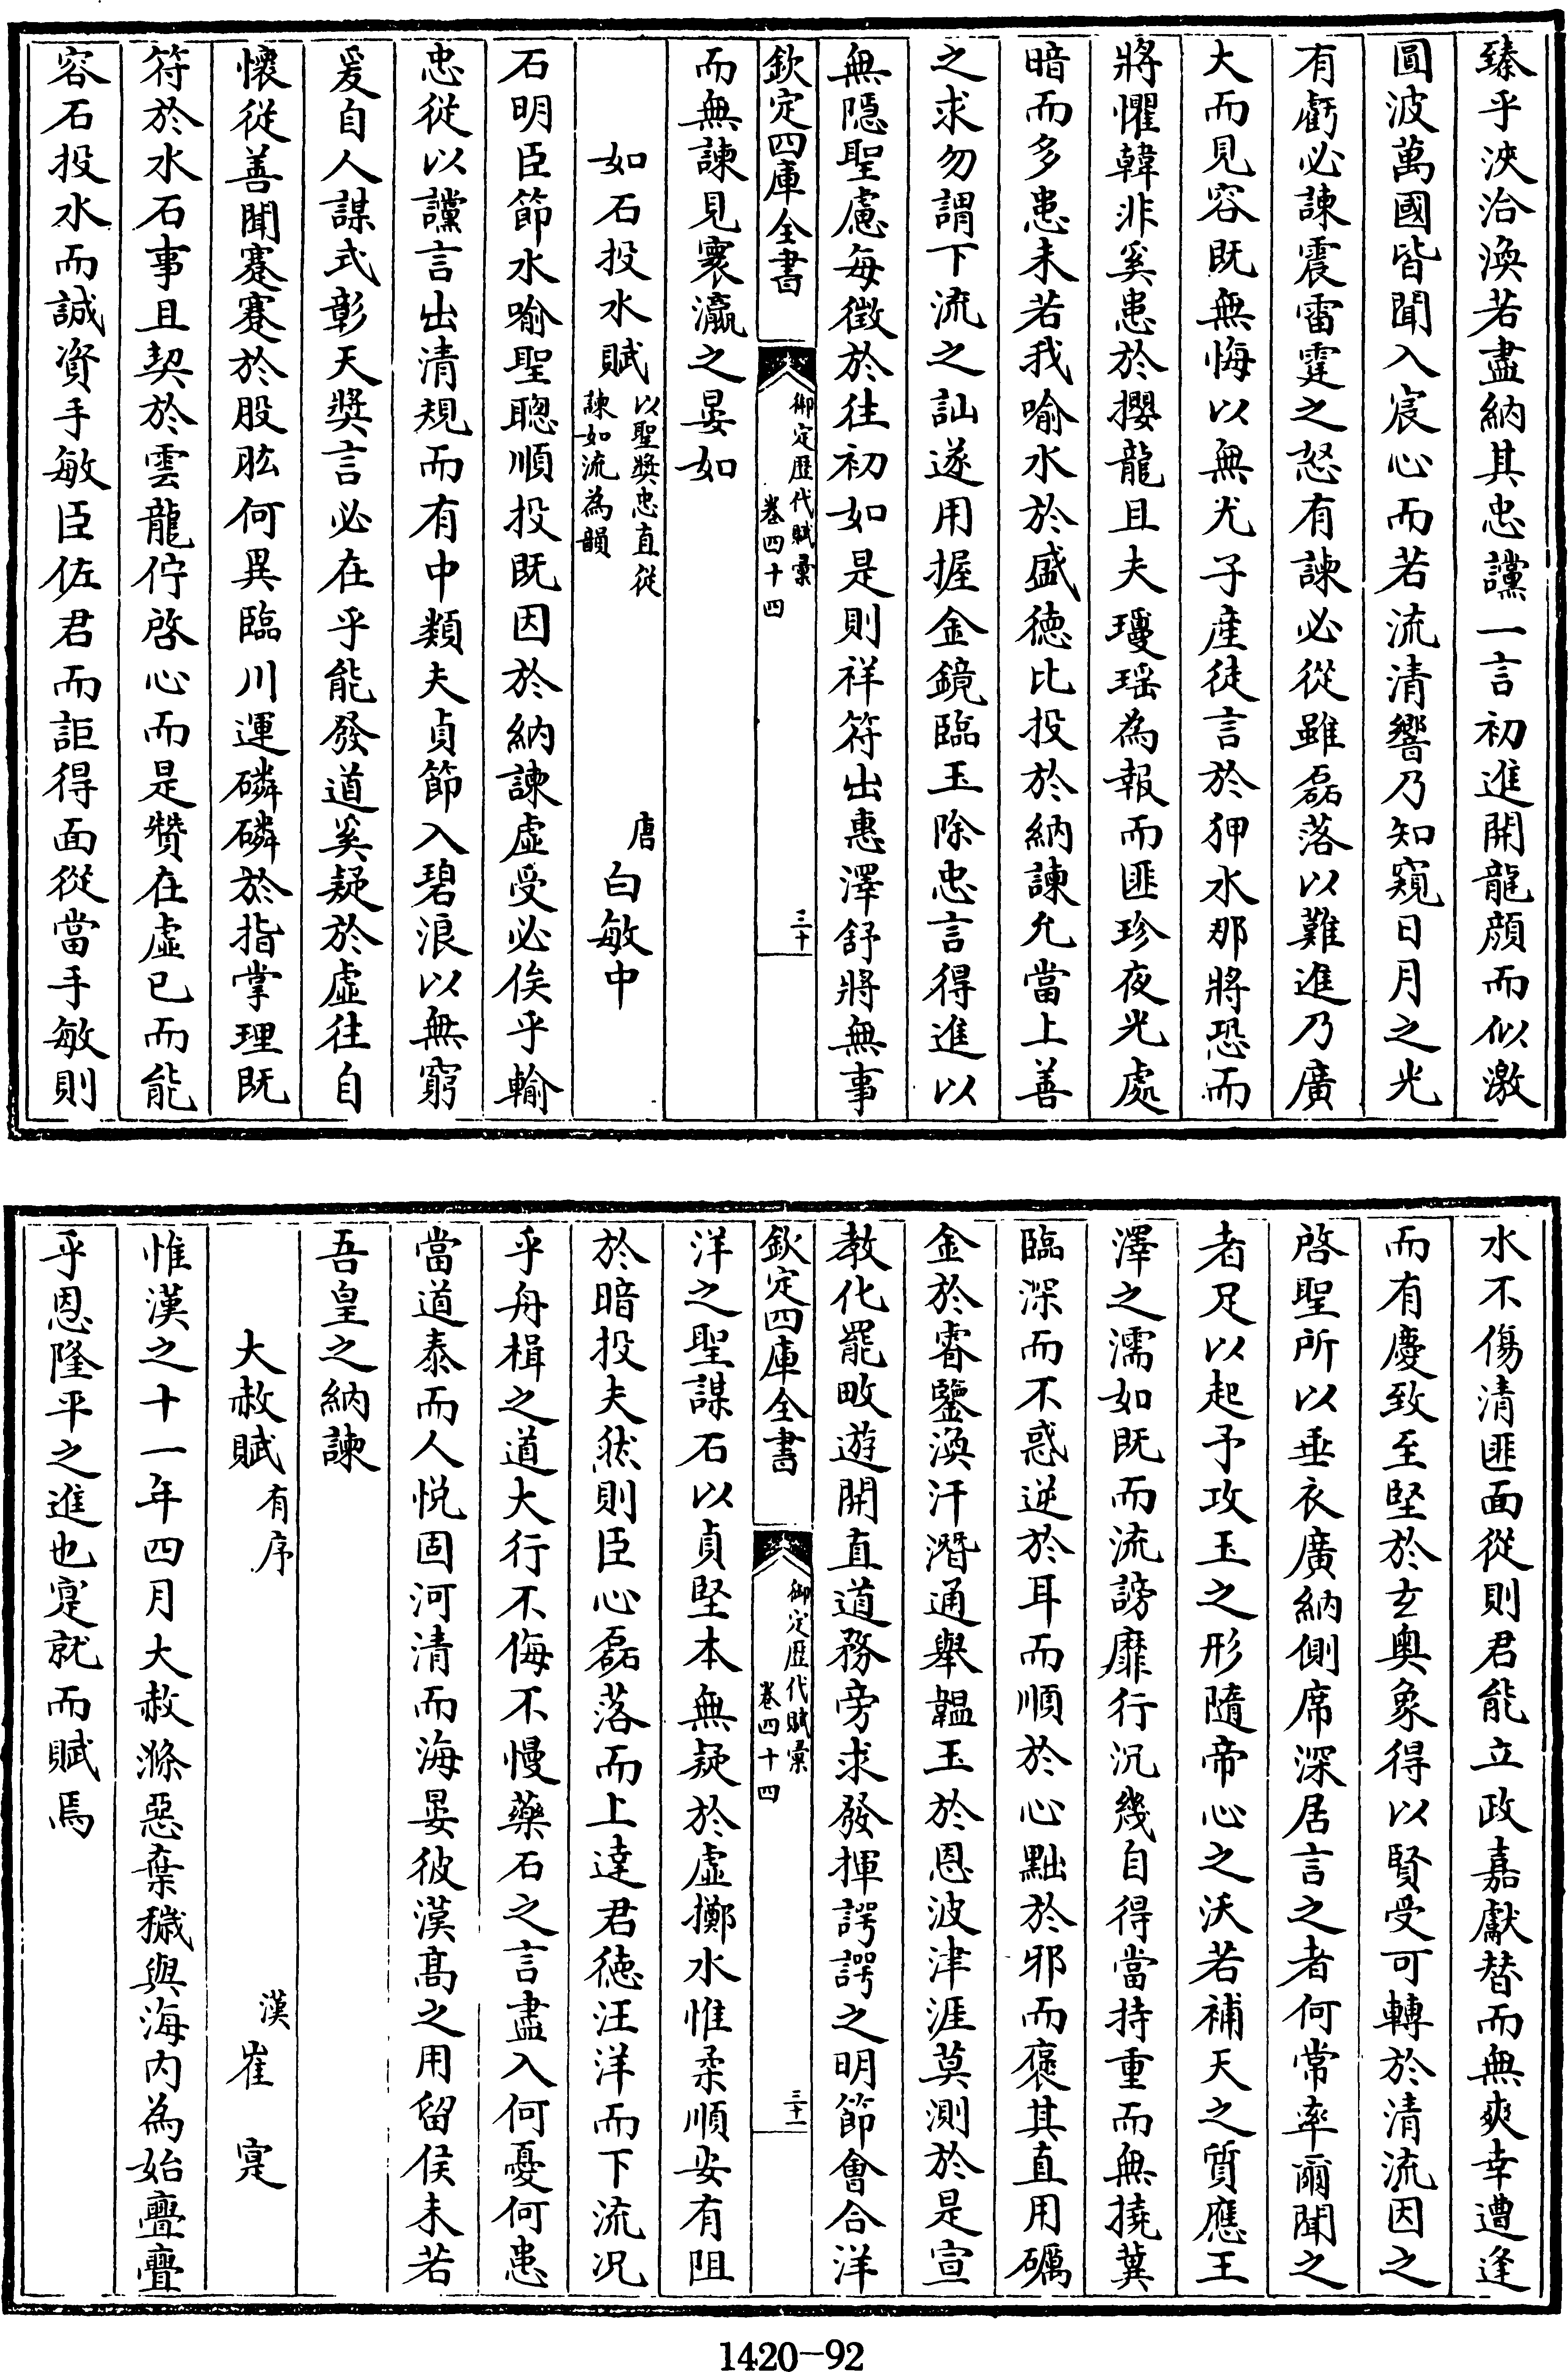 臻乎浹洽渙若盡納其忠讜一言初進開龍顔而似激
圓波萬國皆聞入宸心而若流清響乃知窺日月之光
有虧必諫震雷霆之怒有諫必從雖磊落以難進乃廣
大而見容既無悔以無尤子產徒言於狎水那將恐而
將懼韓非奚患於攖龍且夫瓊瑶為報而匪珍夜光處
暗而多患未若我喻水於盛徳比投於納諫允當上善
之求勿謂下流之訕遂用握金鏡臨玉除忠言得進以
無隱聖慮每徵於往初如是則祥符出惠澤舒將無事
欽定四庫全書
御定歴代賦彙
卷四十四
三十
而無諫見寰瀛之晏如
如石投水賦
以聖奬忠直從
諫如流為韻
唐
白敏中
石明臣節水喻聖聰順投既因於納諫虛受必俟乎輸
忠從以讜言出清規而有中類夫貞節入碧浪以無窮
爰自人謀式彰天奬言必在乎能發道奚疑於虛往自
懷從善聞蹇蹇於股肱何異臨川運磷磷於指掌理既
符於水石事且契於雲龍佇啓心而是贊在虛已而能
容石投水而誠資手敏臣佐君而詎得面從當手敏則
水不傷清匪面從則君能立政嘉獻替而無爽幸遭逢
而有慶致至堅於玄奥象得以賢受可轉於清流因之
啓聖所以垂衣廣納側席深居言之者何常率爾聞之
者足以起予攻玉之形隨帝心之沃若補天之質應王
澤之濡如既而流謗靡行沉幾自得當持重而無撓冀
臨深而不惑逆於耳而順於心黜於邪而褒其直用礪
金於睿鑒渙汗潛通舉韞玉於恩波津涯莫測於是宣
教化罷畋遊開直道務旁求發揮諤諤之明節會合洋
欽定四庫全書
御定歴代賦彙
卷四十四
三十一
洋之聖謀石以貞堅本無疑於虛擲水惟柔順安有阻
於暗投夫然則臣心磊落而上達君徳汪洋而下流况
乎舟楫之道大行不侮不慢藥石之言盡入何憂何患
當道泰而人悦固河清而海晏彼漢髙之用留侯未若
吾皇之納諫
大赦賦
有序
漢
崔寔
惟漢之十一年四月大赦滌惡棄穢與海内為始亹亹
乎恩隆平之進也寔就而賦焉
1420-92